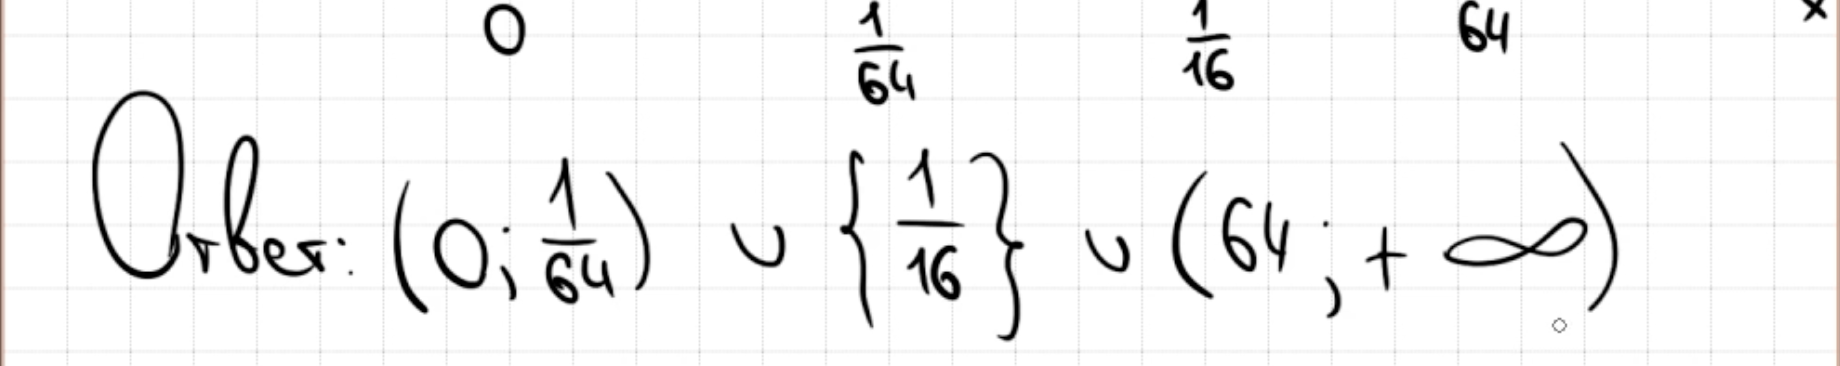 0 1/64 1/16 64 x
Ответ: (0; 1/64) ∪ {1/16} ∪ (64; +∞)